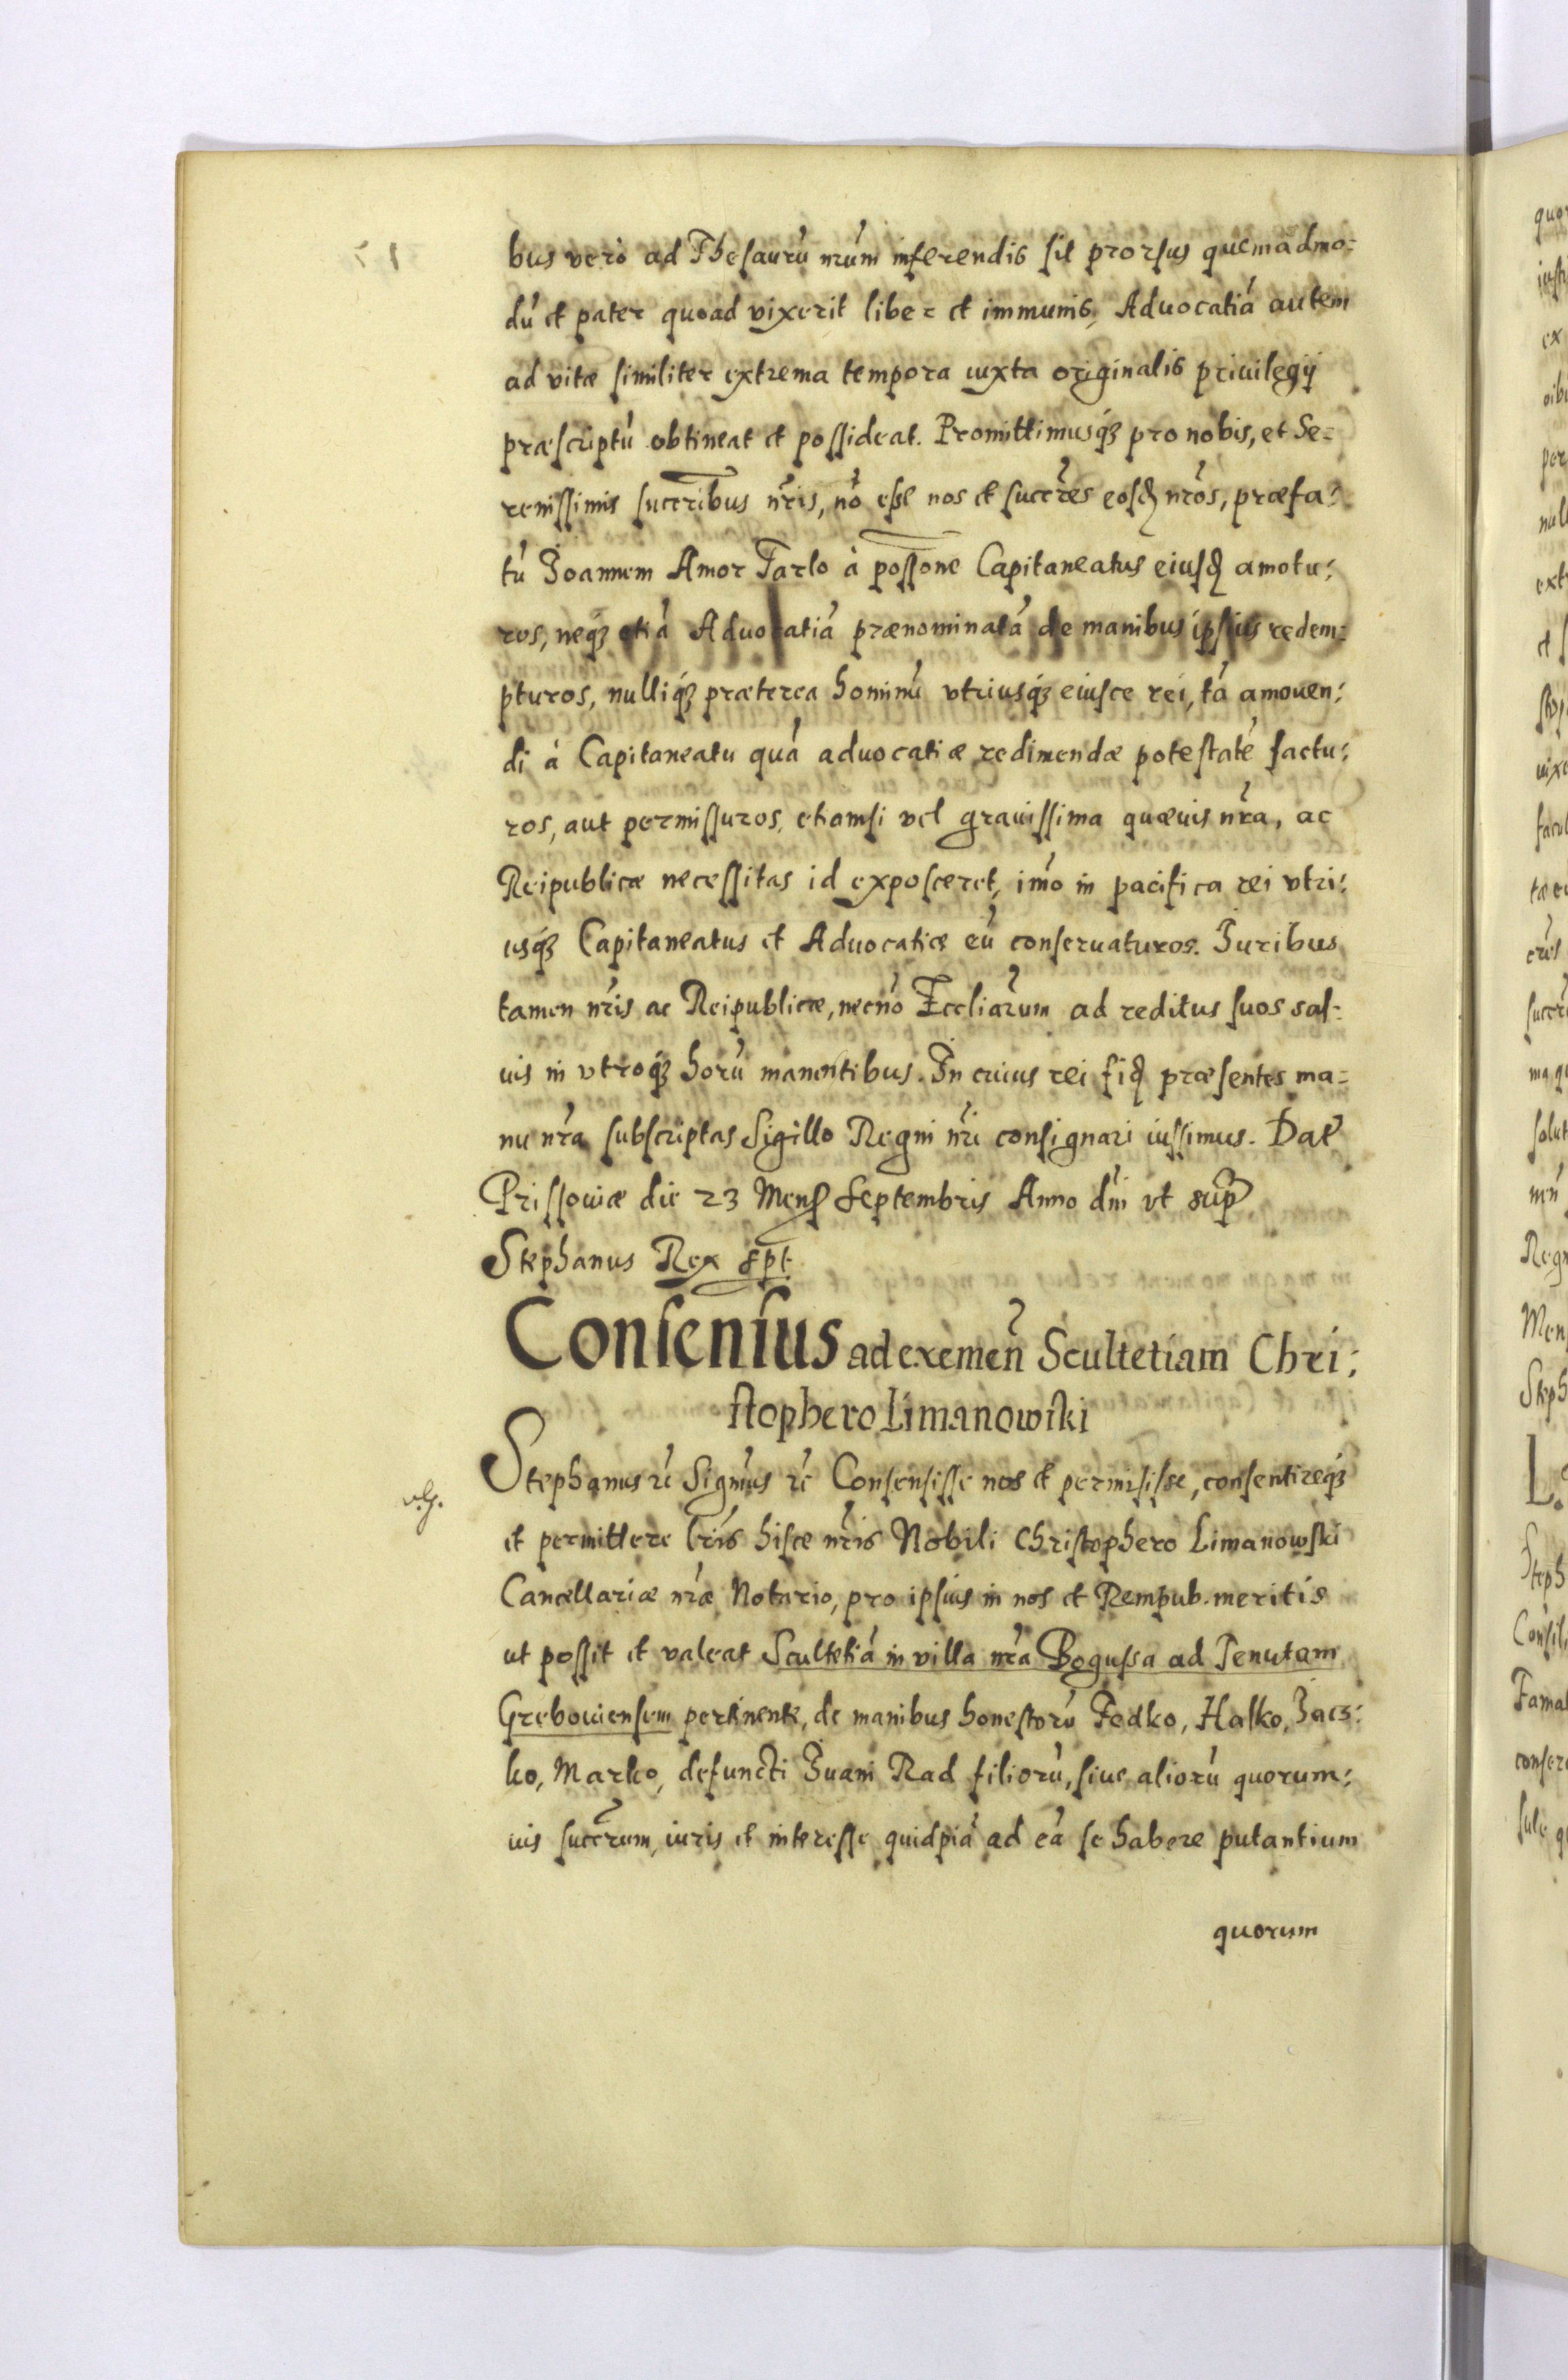 bus vero ad Thesaurũ nrũm inferendis sit prorsus quemadmo=
dũ et pater quoad vixerit liber et immunis, Advocatiã autem
ad vitæ similiter extrema tempora iuxta originalis priuilegij
præscriptũ obtineat et possideat. Promittimusq́ꝫ pro nobis, et Se=
renissimis succribus nris, nõ esse nos et succres eosdꝫ nros, præfa:
tũ Joannem Amor Tarlo à possone Capitaneatus eiusdꝫ amotu:
ros, neq́ꝫ etiã Aduocatiã prænominatã de manibus ipsius redem=
pturos, nulliq́ꝫ præterea hominũ vtriusq́ꝫ eiusce rei, tã amouen:
di à Capitaneatu quã aduocatiæ redimendæ potestatẽ factu:
ros, aut permissuros, etiamsi vel grauissima quæuis nra, ac
Reipublicæ necessitas id exposceret, imo in pacifica rei vtri:
usq́ꝫ Capitaneatus et Aduocatiæ eũ conseruaturos. Juribus
tamen nris ac Reipublicæ, necnõ Eccliarum ad reditus suos sal-
uis in vtroq́ꝫ horũ manentibus. In cuius rei fidꝫ præsentes ma=
nu nra subscriptas Sigillo Regni nri consignari iussimus. Dat
Prissouiæ die 23 Mens Septembris Anno dni vt sup
Stephanus Rex spt
Consensus ad exemen Scultetiam Chri:
stophero Limanowski
Stephanus rc Sigmus rc Consensisse nos et permisisse, consentireq́ꝫ
et permittere lris hisce nris Nobili Christophero Limanowski
Cancellariæ nræ Notario, pro ipsius in nos et Rempub. meritis
ut possit et valeat Scultetiã in villa nra Bogussa ad Tenutam
Grebouiensem pertinente, de manibus honestorũ Fedko, Halko, Jacz:
ko, Marko, defuncti Iuani Rad filiorũ, siue aliorũ quorum:
uis succrum, iuris et interesse quidpiã ad eã se habere putantium
quorum